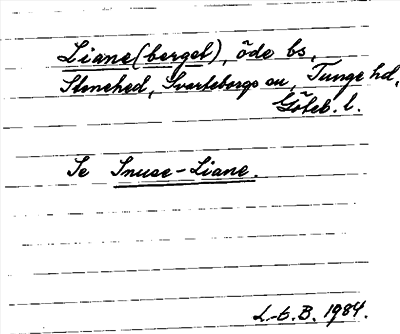 Liane(berget), öde bs,
Stenehed, Svarteborgs sn, Tunge hd,
Göteb. l.
Se Snuse-Liane.
L-G. B. 1984.